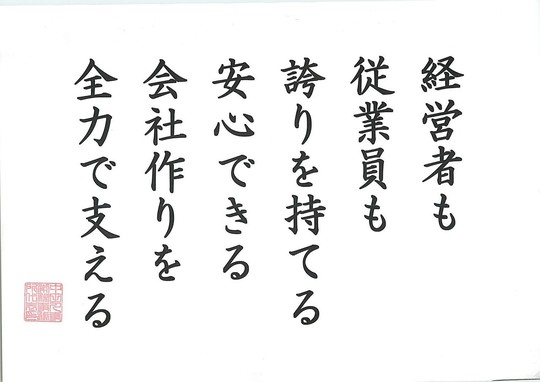 経営者も
従業員も
誇りを持てる
安心できる
会社作りを
全力で支える